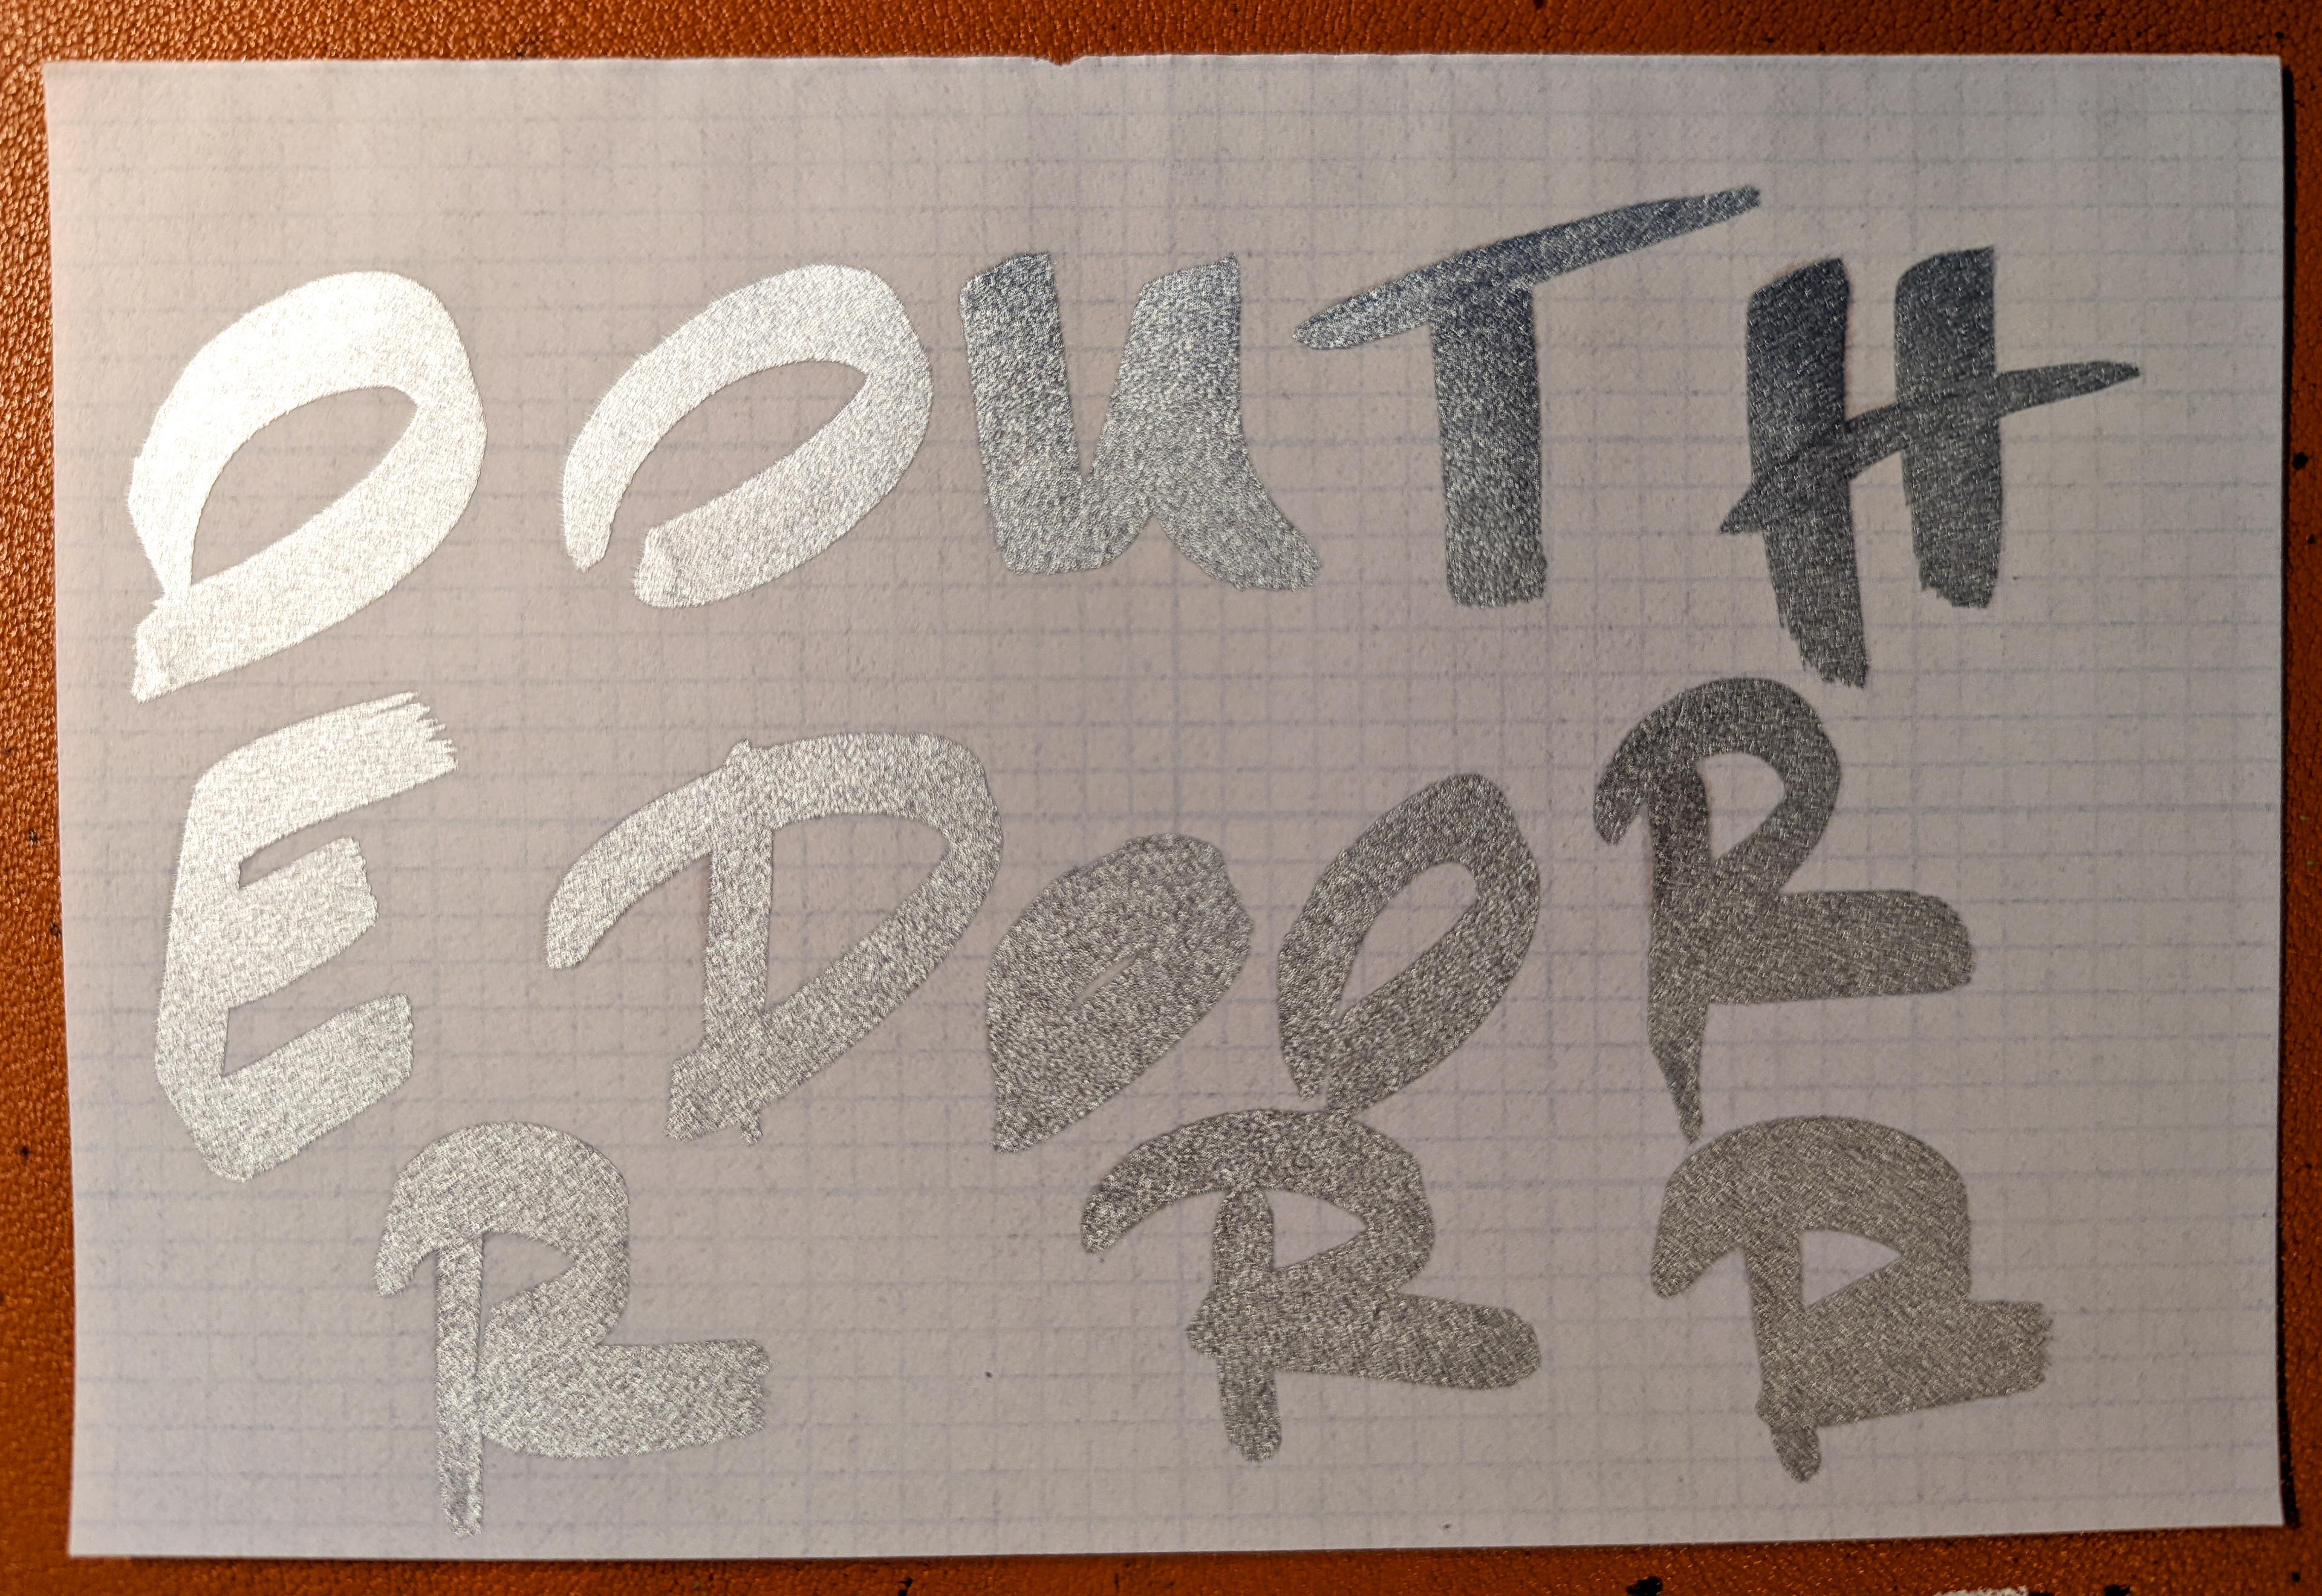 OOUTH
EDOOR
RRR